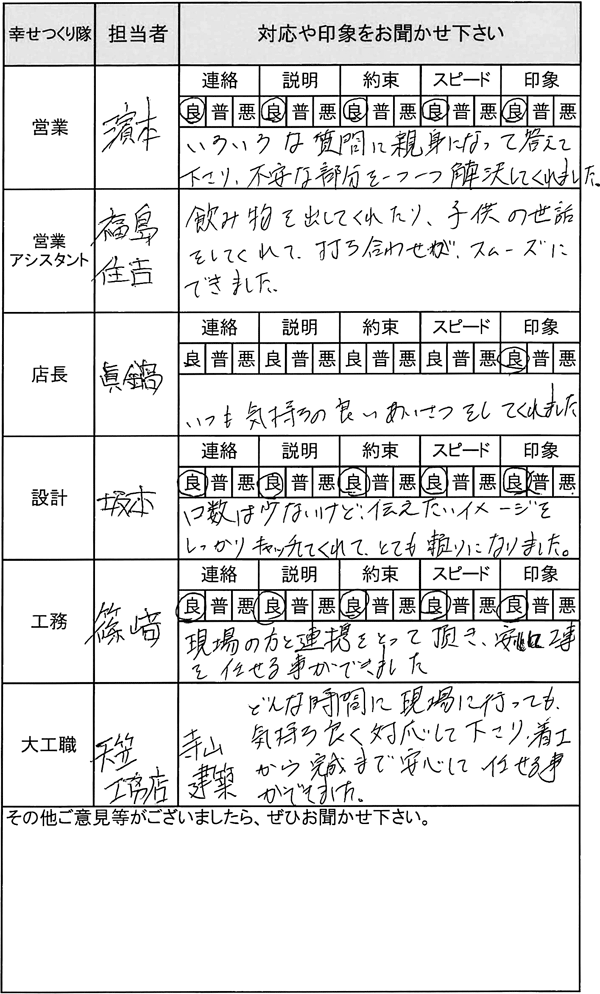 幸せつくり隊 担当者 対応や印象をお聞かせ下さい
連絡 説明 約束 スピード 印象
営業 濱本 良 普 悪 良 普 悪 良 普 悪 良 普 悪 良 普 悪
いろいろな質問に親身になって答えて
下さり、不安な部分を一つ一つ解決してくれました。
営業
アシスタント
福島
住吉
飲み物を出してくれたり、子供の世話
をしてくれて、打ち合わせが、スムーズに
できました。
連絡 説明 約束 スピード 印象
店長 眞鍋 良 普 悪 良 普 悪 良 普 悪 良 普 悪 良 普 悪
いつも気持ちの良いあいさつをしてくれました
連絡 説明 約束 スピード 印象
設計 坂本 良 普 悪 良 普 悪 良 普 悪 良 普 悪 良 普 悪
口数は少ないけど、伝えたいイメージを
しっかりキャッチしてくれて、とても頼りになりました。
連絡 説明 約束 スピード 印象
工務 篠﨑 良 普 悪 良 普 悪 良 普 悪 良 普 悪 良 普 悪
現場の方と連携をとって頂き、安心工事
を任せる事ができました
大工職
天笠
工務店
寺山
建築
どんな時間に現場に行っても、
気持ち良く対応して下さり、着工
から完成まで安心して任せる事
ができました。
その他ご意見等がございましたら、ぜひお聞かせ下さい。